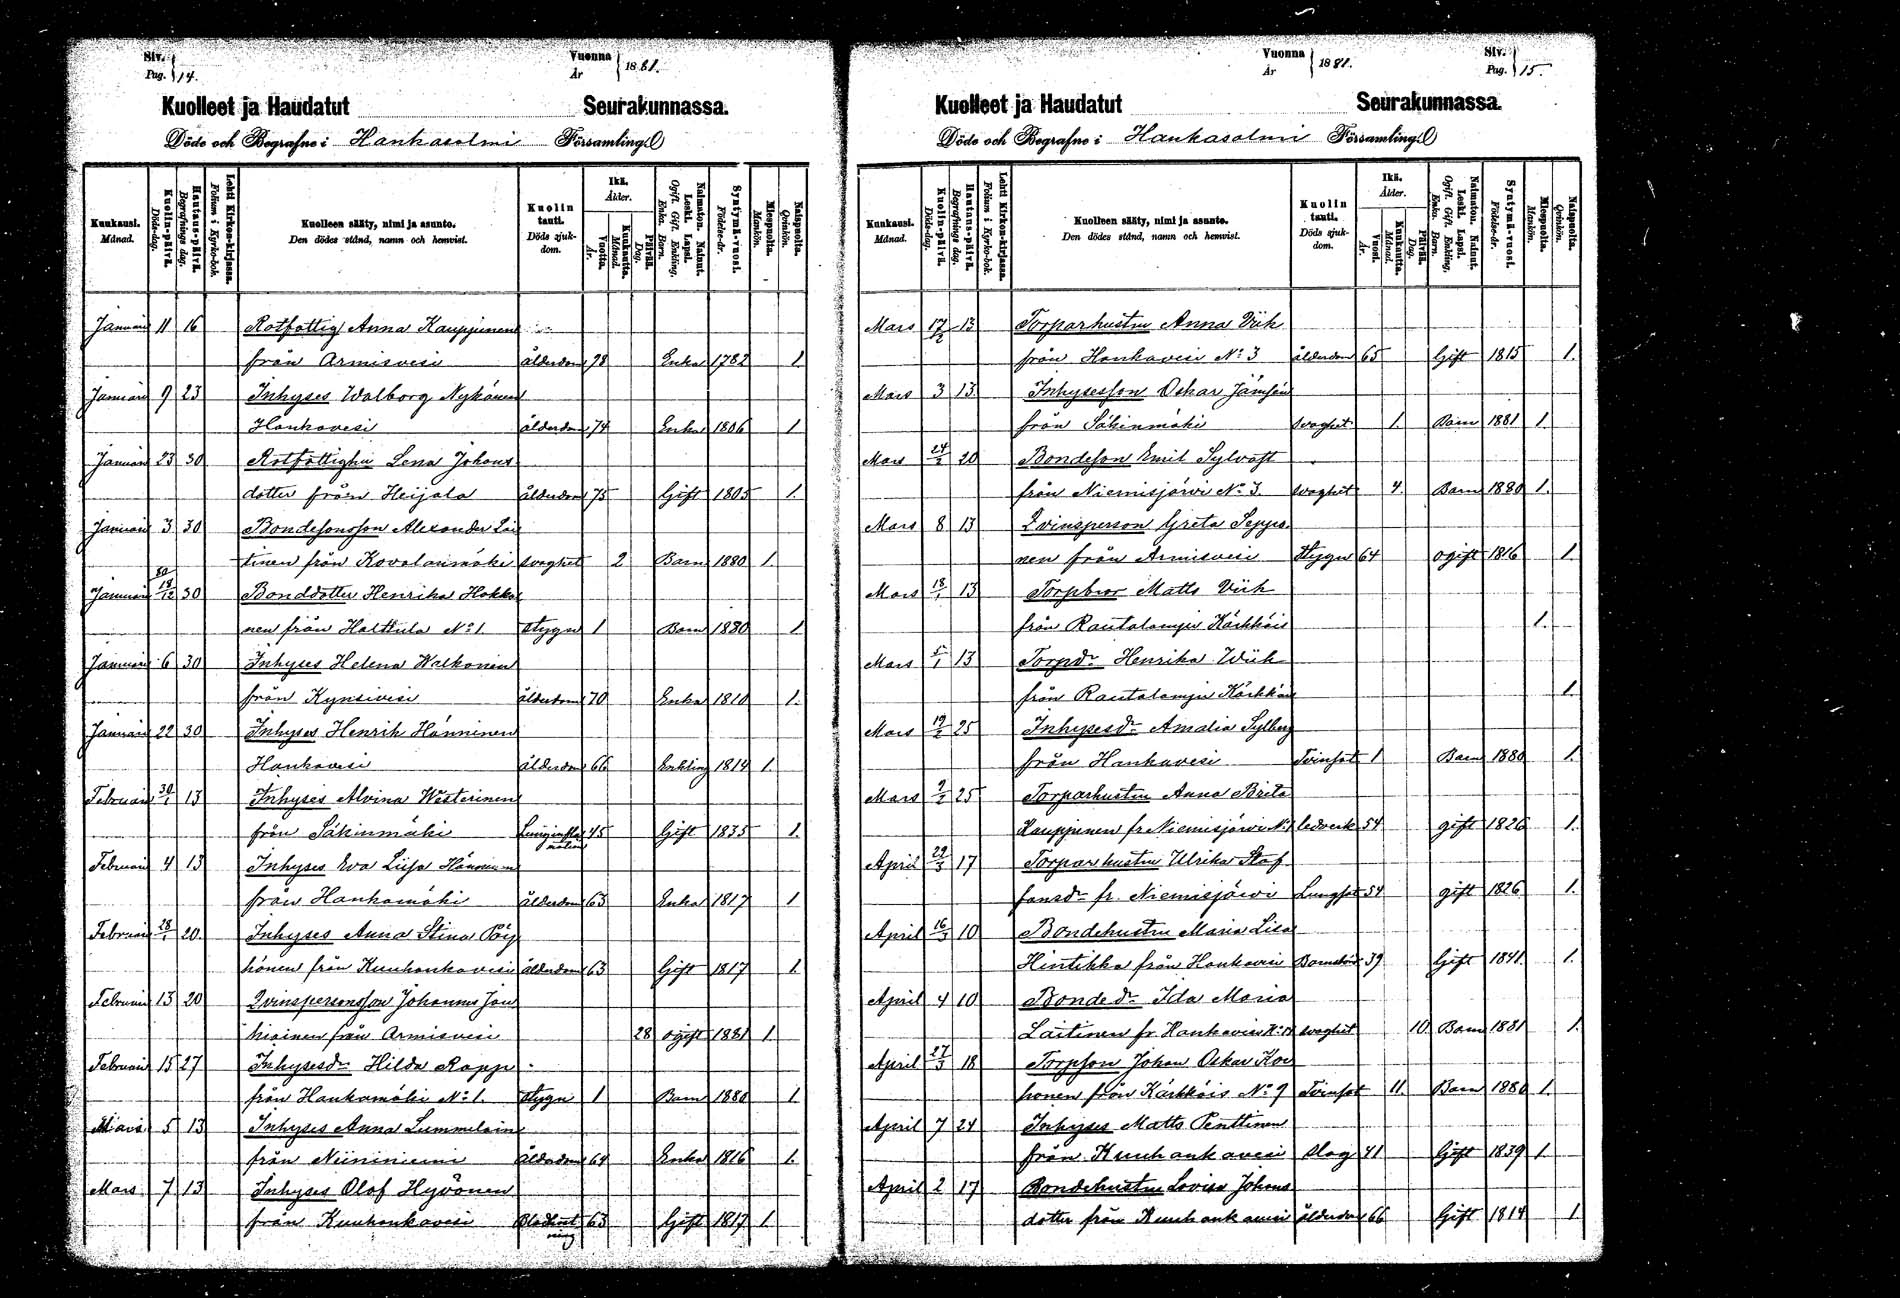 Siv.
Pag. 14.
Vuonna
År 1881.
Kuolleet ja Haudatut Seurakunnassa.
Döde och Begrafne i Hankasalmi Församling
Kuukausi. Månad.
Kuolin-päivä. Döds-dag.
Hautaus-päivä. Begrafnings dag.
Lehti Kirkon-kirjassa. Folium i Kyrko-bok.
Kuolleen sääty, nimi ja asunto. Den dödes stånd, namn och hemvist.
Kuolin tauti. Döds sjukdom.
Ikä. Ålder.
Vuotta. År.
Kuukautta. Månad.
Päivää. Dag.
Naimaton. Nainut. Leski. Lapsi. Ogift. Gift. Enkling. Enka. Barn.
Syntymä-vuosi. Födelse-år.
Miespuolta. Mankön.
Naispuolta. Qvinkön.
Januari 11 16 Rotfattig Anna Kauppinen
från Armisvesi ålderdom 98 Enka 1782 1.
Januari 9 23 Inhyses Walborg Nykänen
Hankavesi ålderdom 74 Enka 1806 1
Januari 23 30 Rotfattighu Lena Johans
dotter från Heijala ålderdom 75 Gift 1805 1.
Januari 3 30 Bondesonsson Alexander Lai
tinen från Kovalanmäki svaghet 2 Barn 1880 1.
Januari 80 18/12 30 Bonddotter Henrika Hokka
nen från Halttula No 1. Stygn 1 Barn 1880 1.
Januari 6 30 Inhyses Helena Walkonen
från Kynsivesi ålderdom 70 Enka 1810 1.
Januari 22 30 Inhyses Henrik Hänninen
Hankavesi ålderdom 66 Enkling 1814 1.
Februari 30/1 13 Inhyses Alvina Westerinen
från Säkinmäki Lunginflammation 45 Gift 1835 1.
Februari 4 13 Inhyses Eva Liisa Hänninen
från Hankamäki ålderdom 63 Enka 1817 1
Februari 28/1 20. Inhyses Anna Stina Pöy
hönen från Kuuhankavesi ålderdom 63 Gift 1817 1.
Februari 13 20 Qvinspersonsson Johannes Jau
hiainen från Armisvesi 28 ogift 1881 1.
Februari 15 27 Inhysesdr Hilda Rapp
från Hankamäki No 1. Stygn 1 Barn 1880 1.
Mars 5 13 Inhyses Anna Lummelain
från Niininiemi ålderdom 64 Enka 1816 1.
Mars 7 13 Inhyses Olof Hyvönen
från Kuuhankavesi 63 Gift 1817 1
Vuonna
År 1881.
Siv.
Pag. 15.
Kuolleet ja Haudatut Seurakunnassa.
Döde och Begrafne i Hankasalmi Församling
Kuukausi. Månad.
Kuolin-päivä. Döds-dag.
Hautaus-päivä. Begrafnings dag.
Lehti Kirkon-kirjassa. Folium i Kyrko-bok.
Kuolleen sääty, nimi ja asunto. Den dödes stånd, namn och hemvist.
Kuolin tauti. Döds sjukdom.
Ikä. Ålder.
Vuosi. År.
Kuukautta. Månad.
Päivää. Dag.
Naimaton. Nainut. Leski. Lapsi. Ogift. Gift. Enkling. Enka. Barn.
Syntymä-vuosi. Födelse-år.
Miespuolta. Mankön.
Naispuolta. Qvinkön.
Mars 17/2 13 Torparhustru Anna Viik
från Hankavesi No 3 ålderdom 65 Gift 1815 1.
Mars 3 13. Inhysesson Oskar Jämsén
från Säkinmäki svaghet 1. Barn 1881 1
Mars 24/2 20 Bondeson Emil Sylvast
från Niemisjärvi No 3. svaghet 4. Barn 1880 1.
Mars 8 13 Qvinsperson Greta Seppä
nen från Armisvesi Stygn 64 ogift 1816 1.
Mars 18/1 13 Torpbror Matts Viik
från Rautalampi Kärkkäis 1.
Mars 5/1 13 Torpdr Henrika Wiik
från Rautalampi Kärkkäis 1.
Mars 19/2 25 Inhysesdr Amalia Sylberg
från Hankavesi Tvinsot 1 Barn 1880 1.
Mars 9/2 25 Torparhustru Anna Brita
Kauppinen fr. Niemisjärvi No 1 ledverk 54 gift 1826 1.
April 29/3 17 Torparhustru Ulrika Staf
fansdr fr. Niemisjärvi Lungsot 54 gift 1826 1.
April 16/3 10 Bondehustru Maria Lisa
Hintikka från Hankavesi Barnsbörd 39 Gift 1841 1.
April 4 10 Bondedr Ida Maria
Laitinen fr. Hankavesi svaghet 10 Barn 1881 1.
April 27/3 18 Torpson Johan Oskar Kor
honen från Kärkkäis No 9 Tvinsot 11. Barn 1880 1.
April 7 24 Inhyses Matts Penttinen
från Kuuhankavesi slag 41 Gift 1839 1.
April 2 17 Bondehustru Lovisa Johans
dotter från Kuuhankavesi ålderdom 66 Gift 1814 1